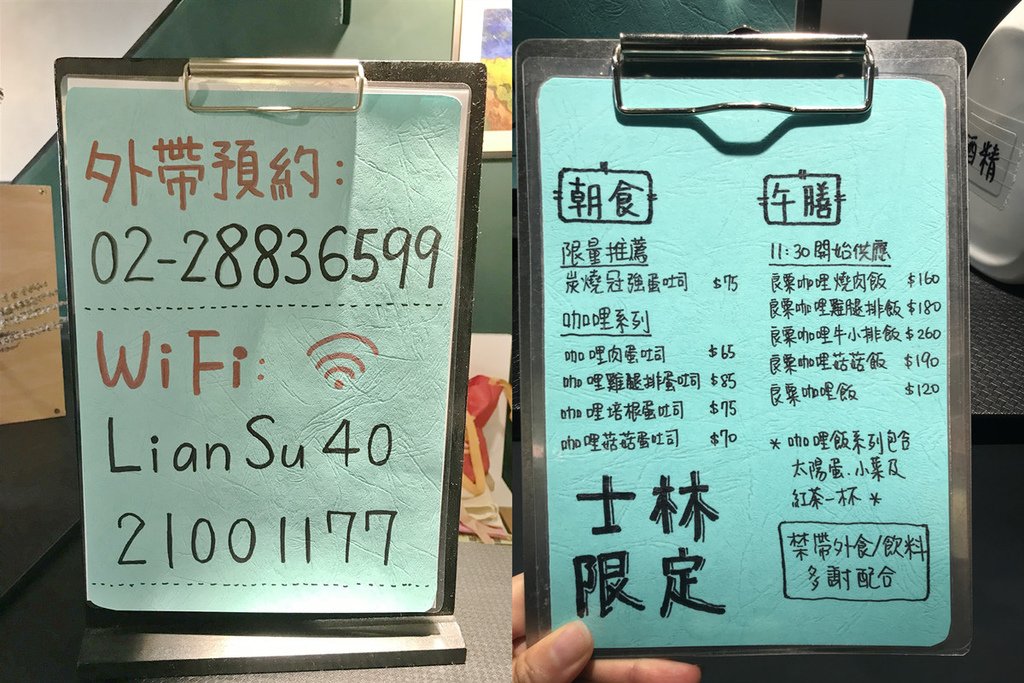 外帶預約:
02-28836599
WiFi:
LianSu40
21001177
朝食
限量推薦
炭燒冠強蛋吐司 $75
咖哩系列
咖哩肉蛋吐司 $65
咖哩雞腿排蛋吐司 $85
咖哩培根蛋吐司 $75
咖哩菇菇蛋吐司 $70
士林
限定
午膳
11:30開始供應
良粟咖哩燒肉飯 $160
良粟咖哩雞腿排飯 $180
良粟咖哩牛小排飯 $260
良粟咖哩菇菇飯 $190
良粟咖哩飯 $120
* 咖哩飯系列包含
太陽蛋.小菜及
紅茶一杯 *
禁帶外食/飲料
多謝配合
酒精